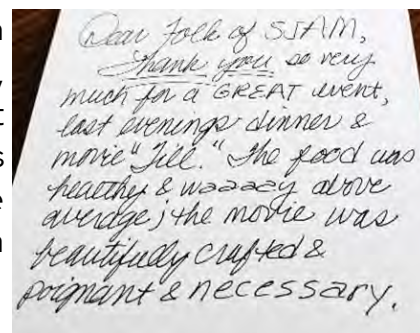 Dear Folk of SJAM,
Thank you so very
much for a GREAT event,
last evenings dinner &
movie "Till." The food was
healthy & waaaay above
average; the movie was
beautifully crafted &
poignant & necessary.